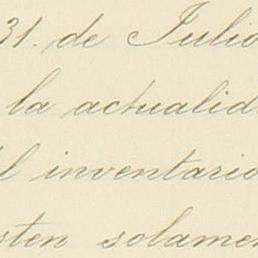 31. de Julio
la actualid
l inventario
sten solamen